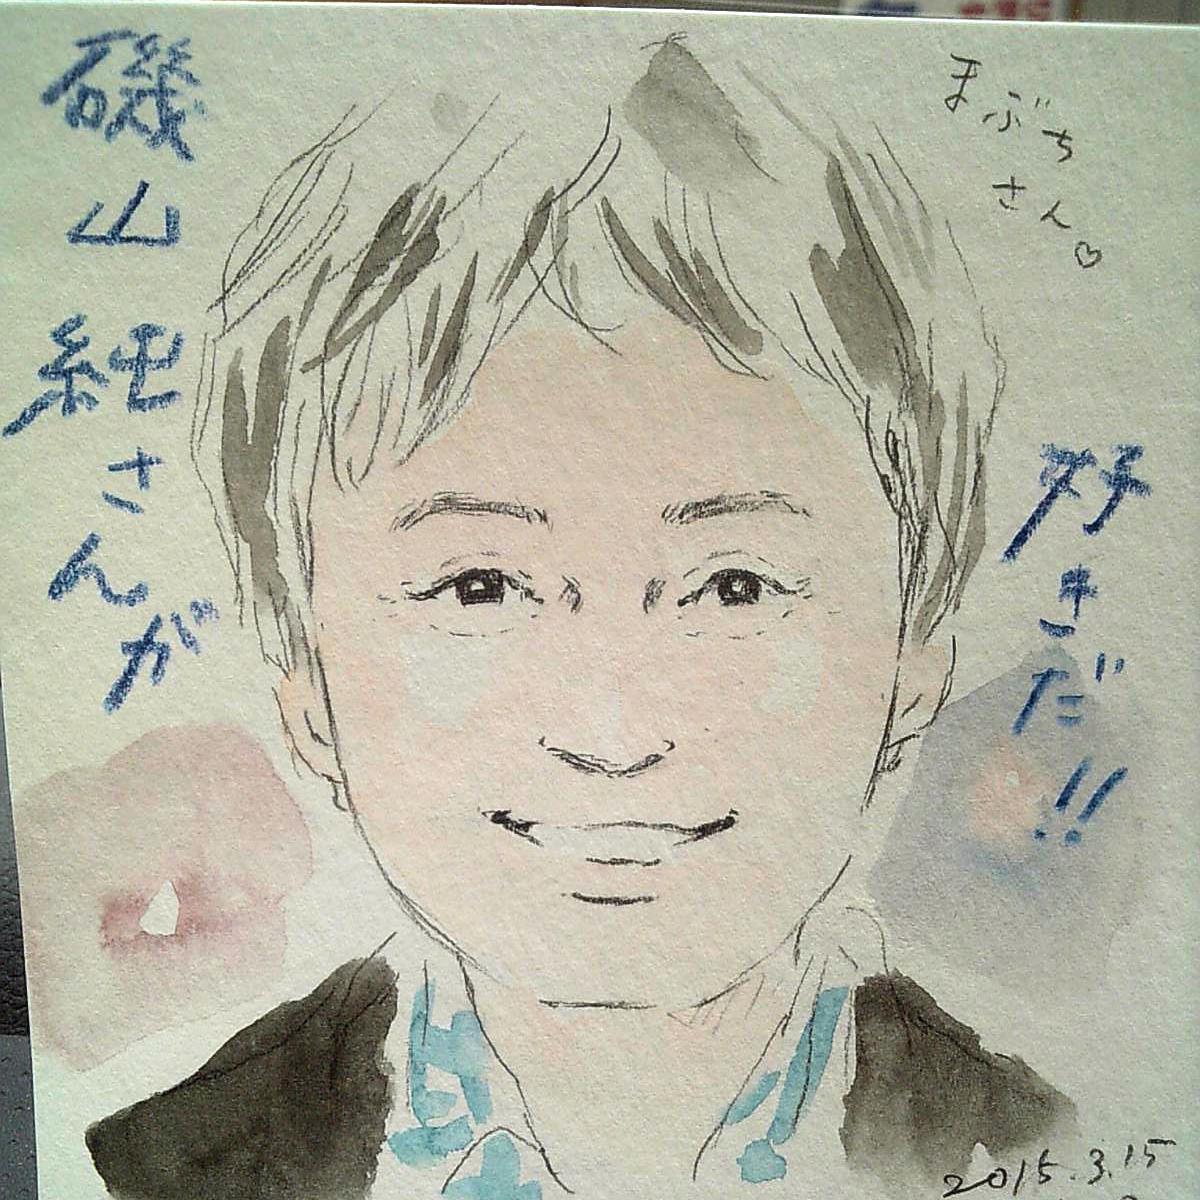 まぶち
さん♡
磯山
純さんが
好きだ!!
2015.3.15